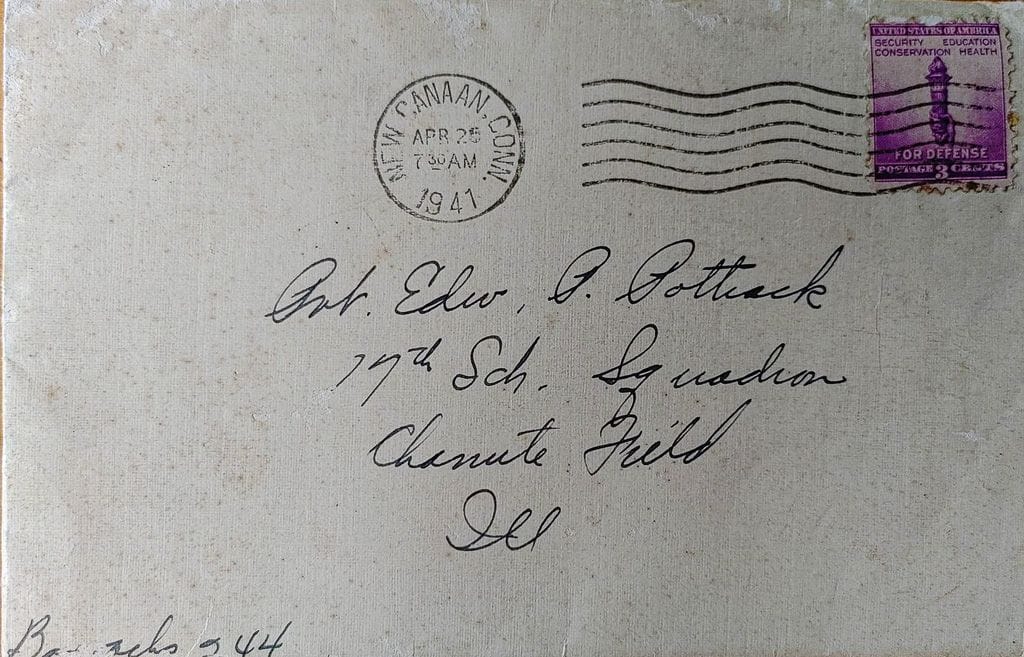 UNITED STATES OF AMERICA
SECURITY EDUCATION
CONSERVATION HEALTH
FOR DEFENSE
POSTAGE 3 CENTS
NEW CANAAN, CONN.
APR 25
7 30 AM
1941
Pvt. Edw. P.
77th Sch. Squadron
Chanute Field
Ill
244